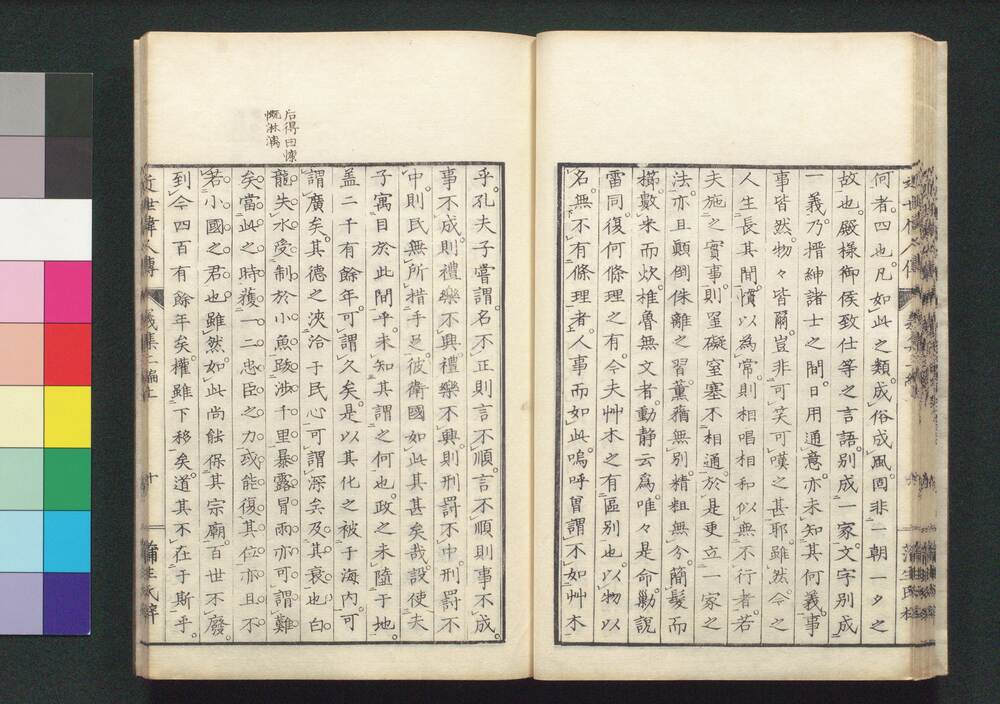 何者。四也。凡如此之類。成俗成風。固非一朝一夕之
故也。殿様御候致仕等之言語。別成一家。文字別成
一義。乃搢紳諸士之間。日用通意。亦未知其何義。事
事皆然。物々皆爾。豈非可笑可嘆之甚耶。雖然。今之
人生長其間。慣以為常。則相唱相和。似無不行者。若
夫施之實事。則罣礙窒塞。不相通。於是更立一家之
法。亦且顛倒侏離之習。薫蕕無別。精粗無分。簡髪而
櫛。數米而炊。椎魯無文者。動静云為。唯々是命。勦説
雷同。復何條理之有。今夫艸木之有區別也。以物以
名。無不有條理者。人事而如此。嗚呼曽謂不如艸木
后得田愫
慨淋漓
乎。孔夫子嘗謂。名不正則言不順。言不順則事不成。
事不成則禮樂不興。禮樂不興。則刑罰不中。刑罰不
中。則民無所措手足。彼衛國如此其甚矣哉。設使夫
子寓目於此間乎。未知其謂之何也。政之未墮于地。
盖二千有餘年。可謂久矣。是以其化之被于海内。可
謂廣矣。其德之浹洽于民心。可謂深矣。及其衰也。白
龍失水。受制於小魚。跋渉千里。暴露冒雨。亦可謂難
矣。當此之時。獲一二忠臣之力。或能復其位。亦且不
若小國之君也。雖然。如此尚能保其宗廟。百世不廢。
到今四百有餘年矣。權雖下移矣。道其不在于斯乎。
近世偉人傳
義集二編上
十
蒲生氏梓